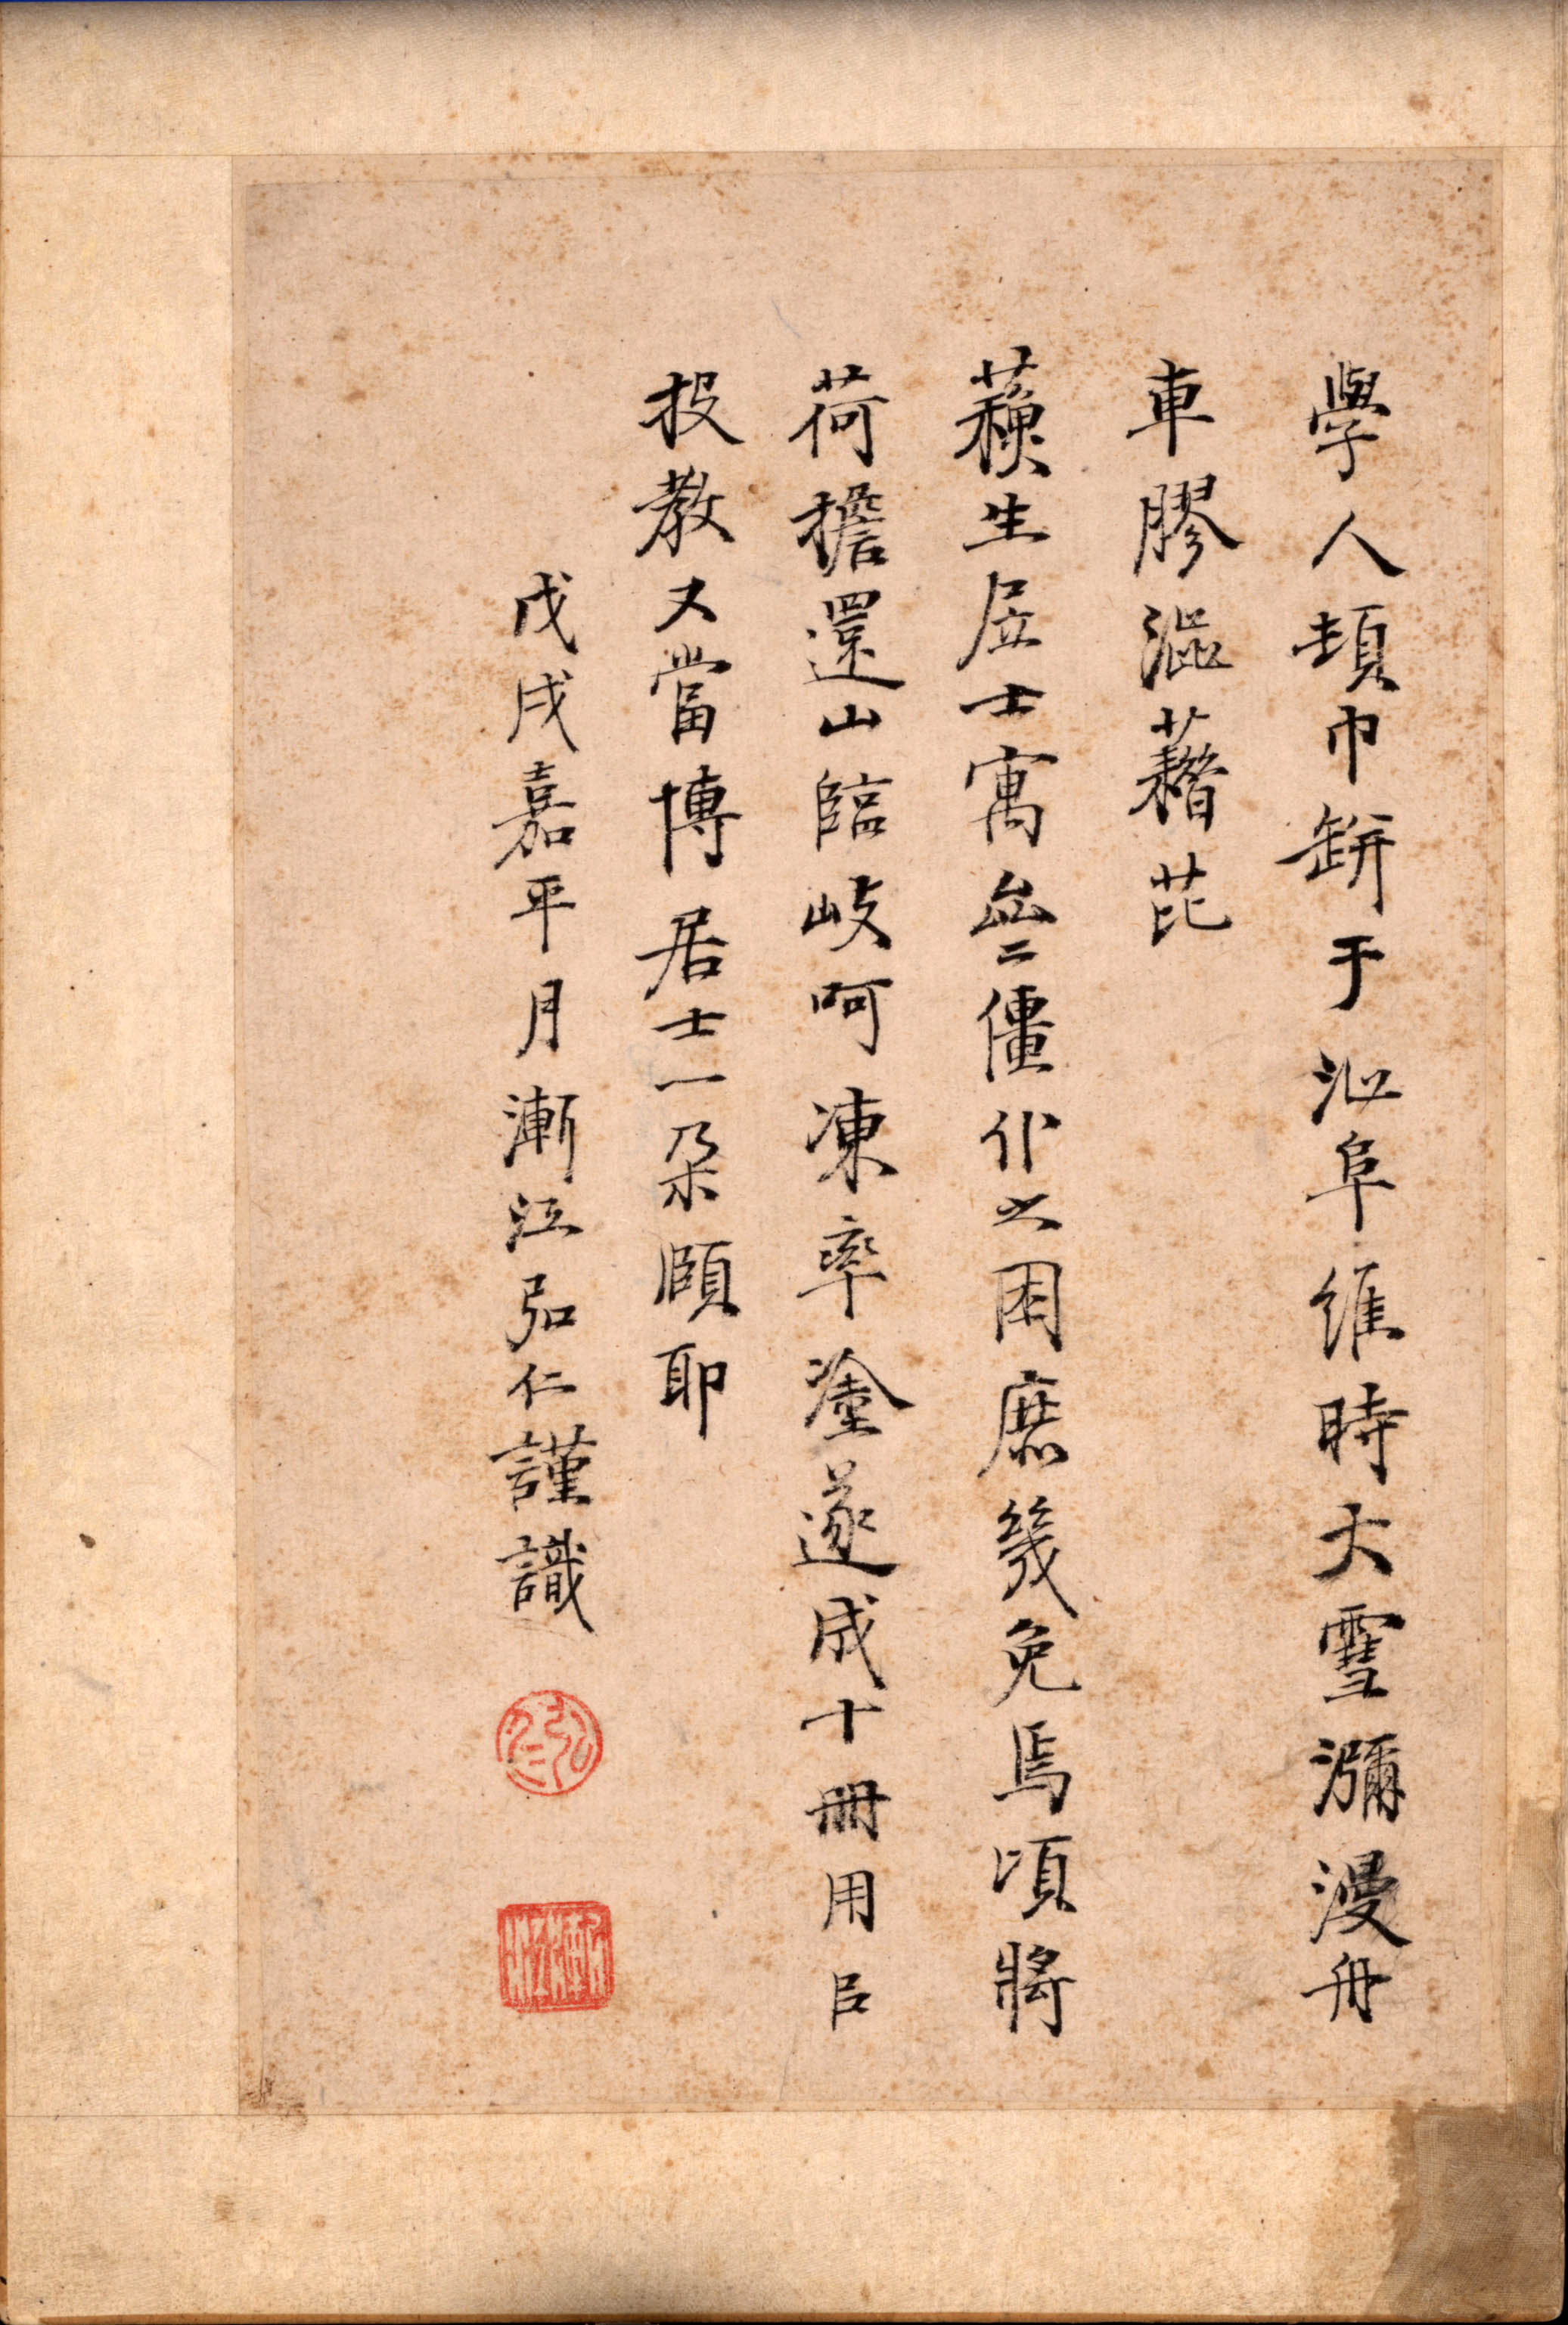 學人頓巾缾于沚阜維時大雪瀰漫舟
車膠澁藉芘
生居士寓齋僵仆之困庶幾免焉頃將
荷擔還山臨岐呵凍率塗遂成十冊用㠯
投教又當博居士一朵頤耶
戊戌嘉平月漸江弘仁謹識
弘仁